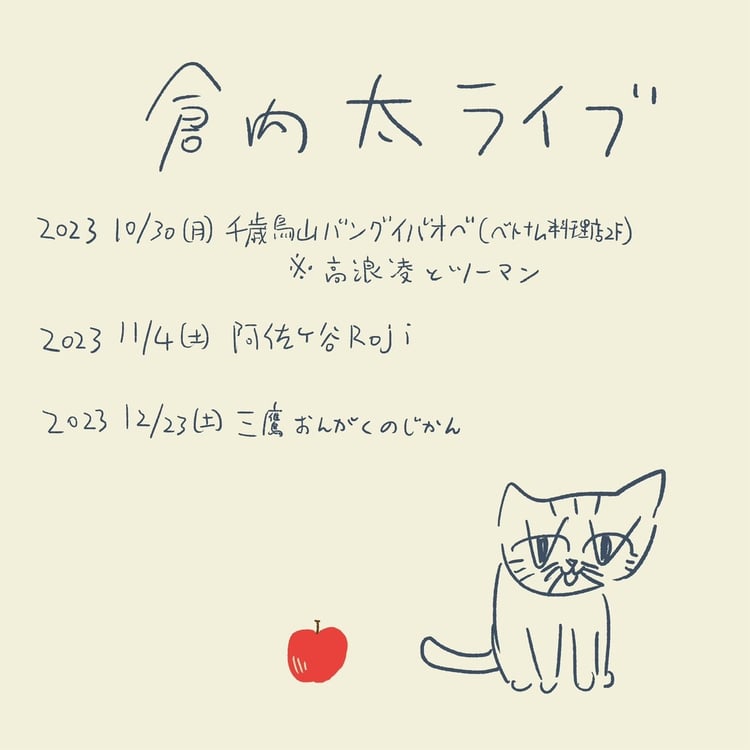 倉内太ライブ
2023 10/30(月) 千歳烏山バングイバオベ(ベトナム料理店2F)
※高浪凌とツーマン
2023 11/4(土) 阿佐ヶ谷Roji
2023 12/23(土) 三鷹おんがくのじかん